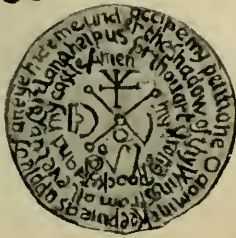 accipe my petitione O domine keepe me as apple of an eye hide me und
the shadow of thy wings from all eve
up and help us for thou art my strong
rock and my castle Amen